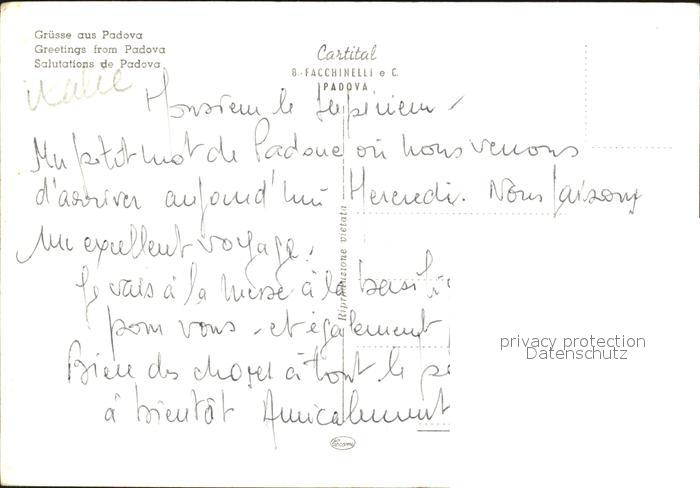 Grüsse aus Padova
Greetings from Padova
Salutations de Padova
Cartital
B. FACCHINELLI e C.
PADOVA
Italie
Monsieur le Supérieur
Un petit mot de Padoue où nous venons
d'arriver aujourd'hui Mercredi. Nous faisons
un excellent voyage.
Je vais à la messe à la basili
pour vous et également
Bien des choses à tout le pe
à bientôt Amicalement
Riproduzione vietata
privacy protection
Datenschutz